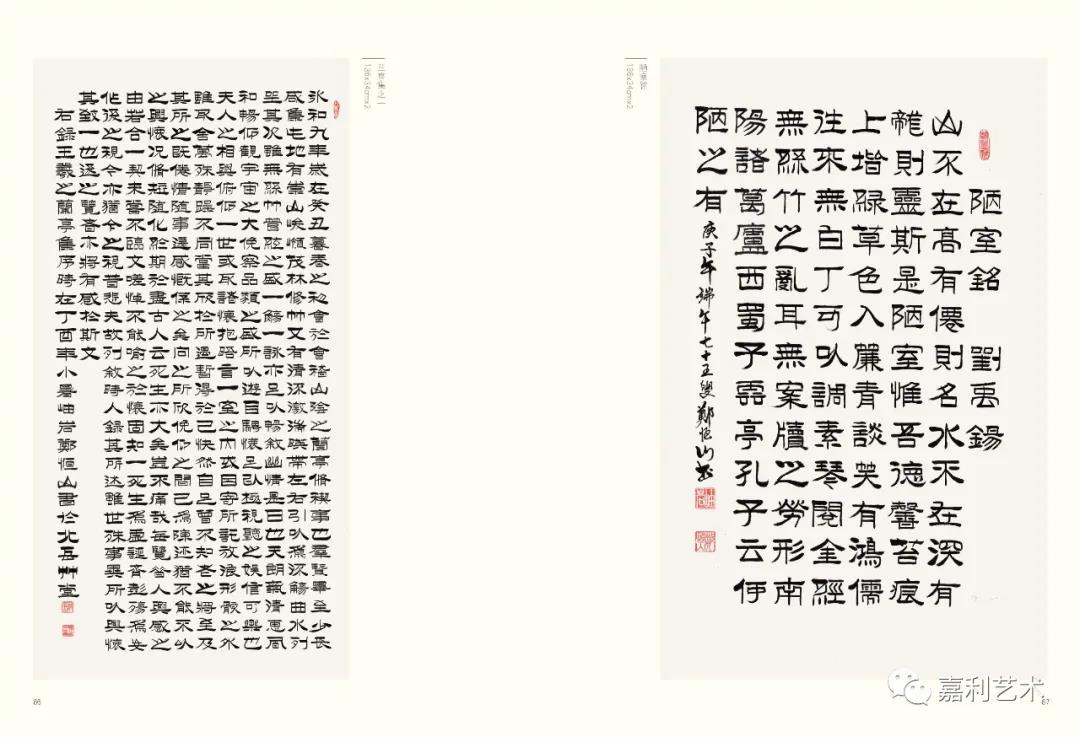 永和九年歲在癸丑暮春之初會於會稽山陰之蘭亭脩禊事也羣賢畢至少長
咸集此地有崇山峻領茂林修竹又有清流激湍映帶左右引以為流觴曲水列
坐其次雖無絲竹管絃之盛一觴一詠亦足以暢敘幽情是日也天朗氣清惠風
和暢仰觀宇宙之大俛察品類之盛所以遊目騁懷足以極視聽之娛信可樂也
夫人之相與俯仰一世或取諸懷抱晤言一室之內或因寄所託放浪形骸之外
雖取舍萬殊靜躁不同當其欣於所遇暫得於己快然自足曾不知老之將至及
其所之既倦情隨事遷感慨係之矣向之所欣俛仰之間已為陳迹猶不能不以
之興懷況脩短隨化終期於盡古人云死生亦大矣豈不痛哉每覽昔人興感之
由若合一契未嘗不臨文嗟悼不能喻之於懷固知一死生為虛誕齊彭殤為妄
作後之視今亦猶今之視昔悲夫故列敘時人錄其所述雖世殊事異所以興懷
其致一也後之覽者亦將有感於斯文
右錄王羲之蘭亭集序時在丁酉年小暑岫岩鄭恆山書於北吾艸堂
136x34cmx2
66
陋室銘
136x34cmx2
陋室銘 劉禹錫
山不在高有僊則名水不在深有
龍則靈斯是陋室惟吾德馨苔痕
上堦綠草色入簾青談笑有鴻儒
往來無白丁可以調素琴閱金經
無絲竹之亂耳無案牘之勞形南
陽諸葛廬西蜀子雲亭孔子云何
陋之有
庚子年端午七十五叟鄭恆山書
嘉利艺术
67